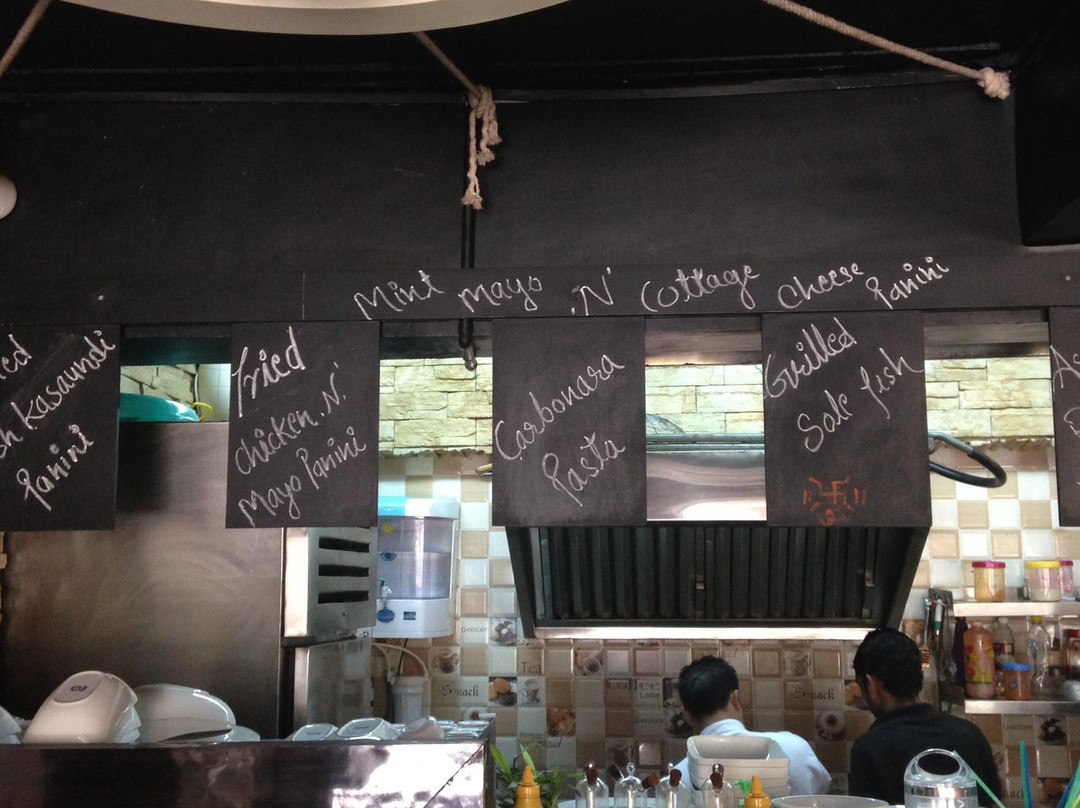 Mint Mayo .N' Cottage Cheese Panini
Kasaundi
Panini
Fried
Chicken .N.'
Mayo Panini
Carbonara
Pasta
Grilled
Sole fish
Tea
Snack
Latte
Snack